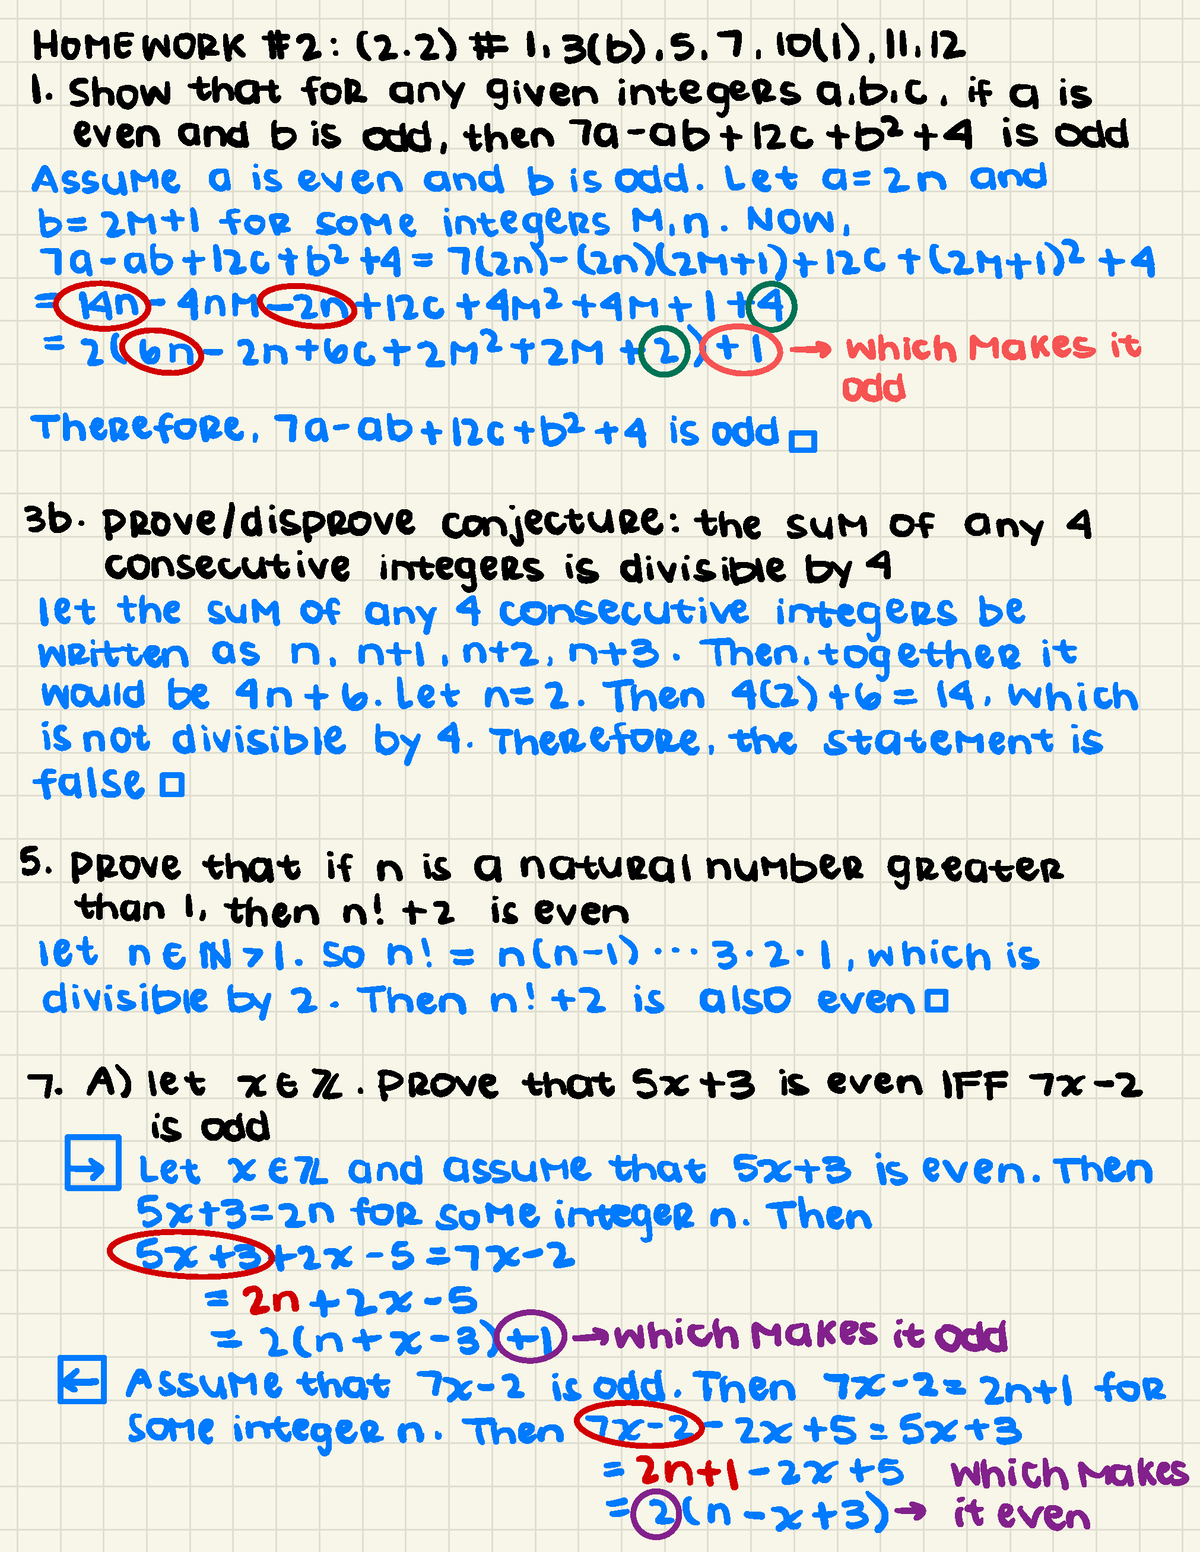 HOMEWORK #2: (2.2) # 1, 3(b), 5, 7, 10(1), 11, 12
1. Show that for any given integers a,b,c, if a is
even and b is odd, then 7a-ab+12c+b²+4 is odd
Assume a is even and b is odd. Let a=2n and
b=2m+1 for some integers m,n. Now,
7a-ab+12c+b²+4 = 7(2n)-(2n)(2m+1)+12c+(2m+1)²+4
= 14n-4nm-2n+12c+4m²+4m+1+4
= 2(6n-2n+6c+2m²+2m+2)+1 → which makes it
odd
Therefore, 7a-ab+12c+b²+4 is odd □
3b. prove/disprove conjecture: the sum of any 4
consecutive integers is divisible by 4
let the sum of any 4 consecutive integers be
written as n, n+1, n+2, n+3. Then, together it
would be 4n+6. Let n=2. Then 4(2)+6=14, which
is not divisible by 4. Therefore, the statement is
false □
5. prove that if n is a natural number greater
than 1, then n!+2 is even
let n∈ℕ>1. So n! = n(n-1)···3·2·1, which is
divisible by 2. Then n!+2 is also even □
7. A) let x∈ℤ. Prove that 5x+3 is even IFF 7x-2
is odd
→ Let x∈ℤ and assume that 5x+3 is even. Then
5x+3=2n for some integer n. Then
5x+3+2x-5=7x-2
= 2n+2x-5
= 2(n+x-3)+1 → which makes it odd
← Assume that 7x-2 is odd. Then 7x-2=2n+1 for
some integer n. Then 7x-2-2x+5=5x+3
= 2n+1-2x+5 which makes
= 2(n-x+3) → it even